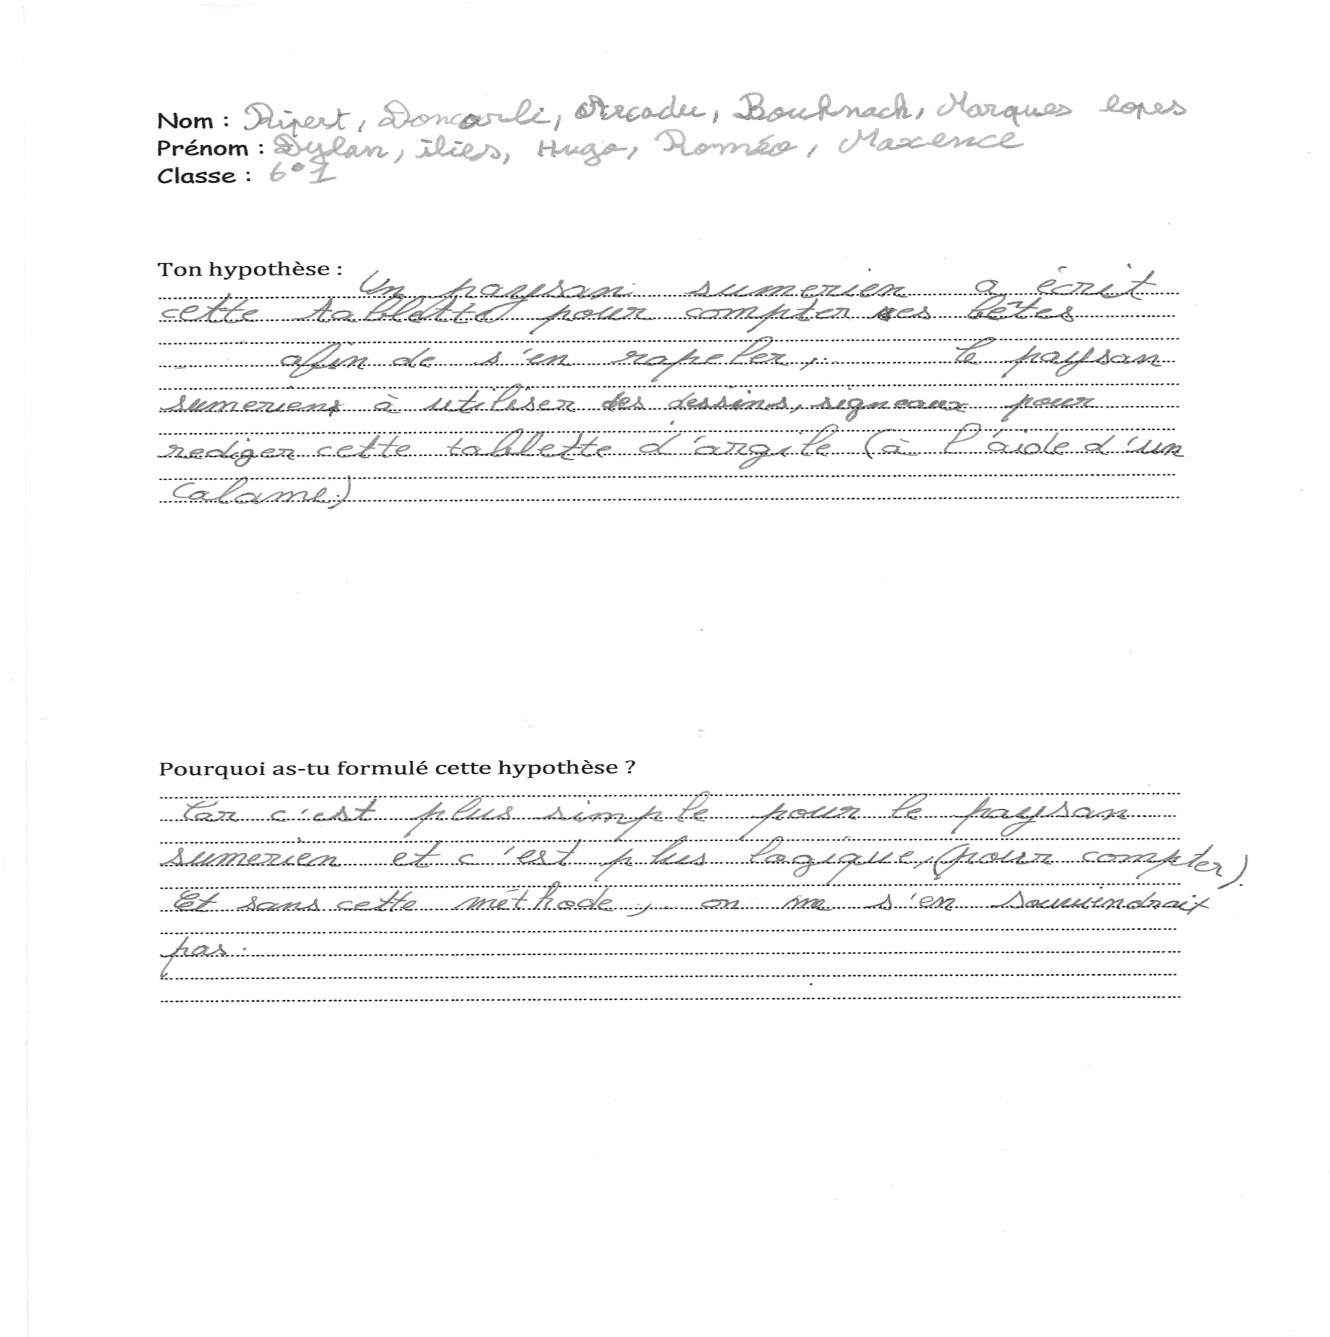 Nom : Ripert, Doncarli, Arcadu, Bouhnach, Marques lopes
Prénom : Dylan, ilies, Hugo, Roméo, Maxence
Classe : 6°1
Ton hypothèse :
Un paysan sumerien a écrit
cette tablette pour compter ses bêtes
afin de s'en rapeler, le paysan
sumeriens à utiliser des dessins, signeaux pour
rediger cette tablette d'argile (à l'aide d'un
calame)
Pourquoi as-tu formulé cette hypothèse ?
Car c'est plus simple pour le paysan
sumerien et c'est plus logique, (pour compter).
Et sans cette méthode, on ne s'en souviendrait
pas.